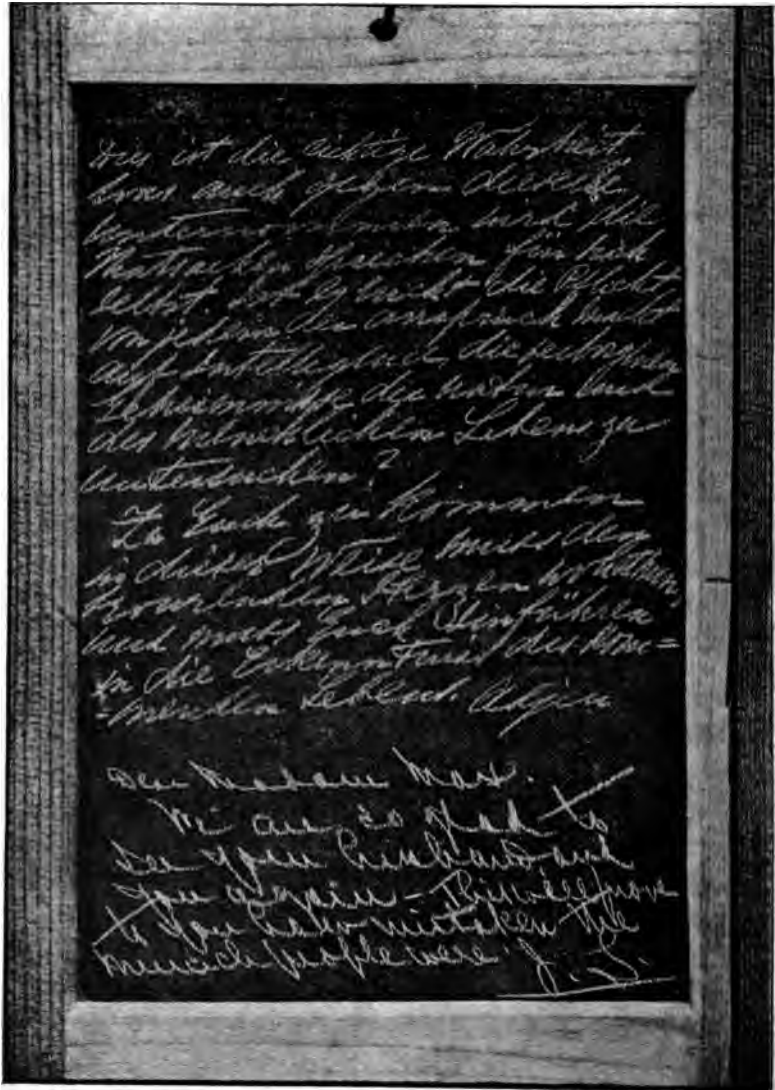 Dies ist die richtige Wahrheit
was auch gegen diese
unternommen wird die
Thatsachen sprechen für sich
selbst. Ist es nicht die Pflicht
von jedem der anspruch macht
auf Intelligenz die
Geheimnisse der natur und
des menschlichen Lebens zu
untersuchen?
Zu Euch zu kommen
in dieser Weise muss den
Herzen wohlthun
und muss Euch Einführen
in die Erkenntniss des kom=
=menden Lebens.
Dear Madame Max.
We are so glad to
see your husband and
you again - This will prove
to you how mistaken the
Munich people were J. S.